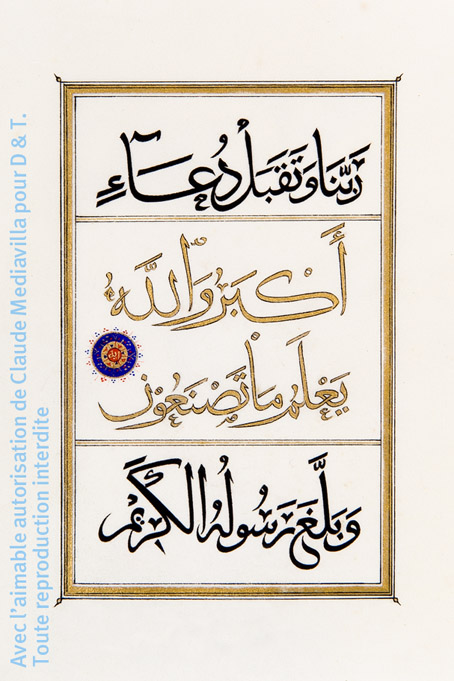 رَبَّنَا وَتَقَبَّلْ دُعَاءِ
أَكْبَرُ وَاللَّهُ
يَعْلَمُ مَا تَصْنَعُونَ
وَبَلَّغَ رَسُولُهُ الكَرِيْمُ
Avec l'aimable autorisation de Claude Mediavilla pour D & T.
Toute reproduction interdite